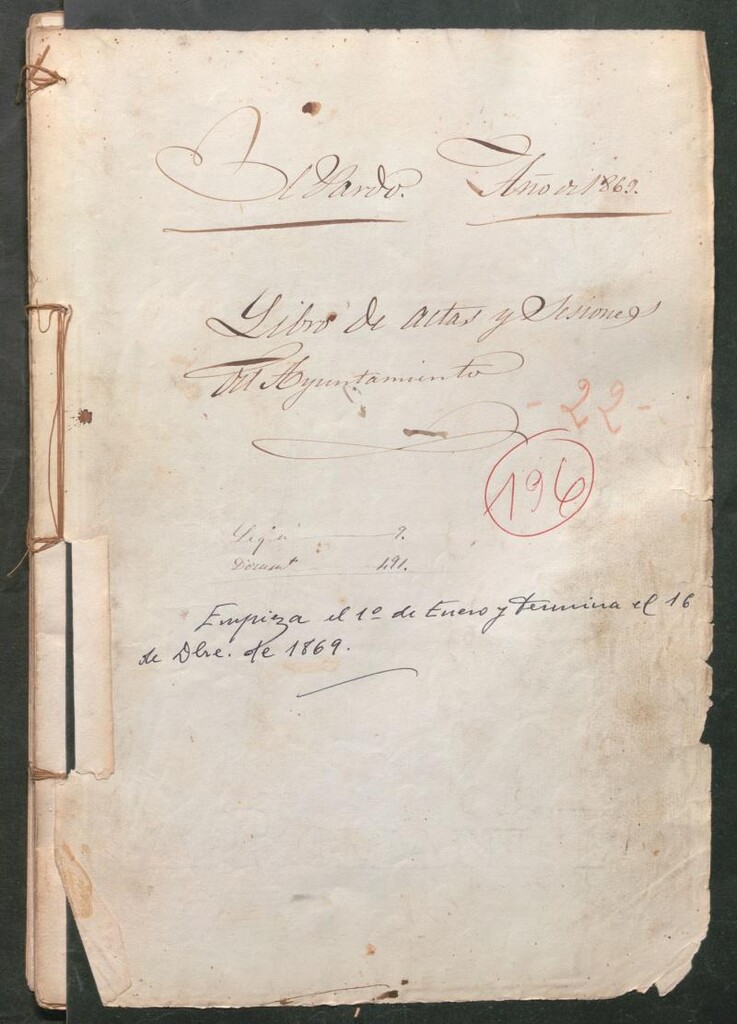 El Pardo. Año de 1869.
Libro de actas y Sesiones
del Ayuntamiento
- 22 -
196
9.
Document 191.
Empieza el 1º de Enero y termina el 16
de Dbre. de 1869.